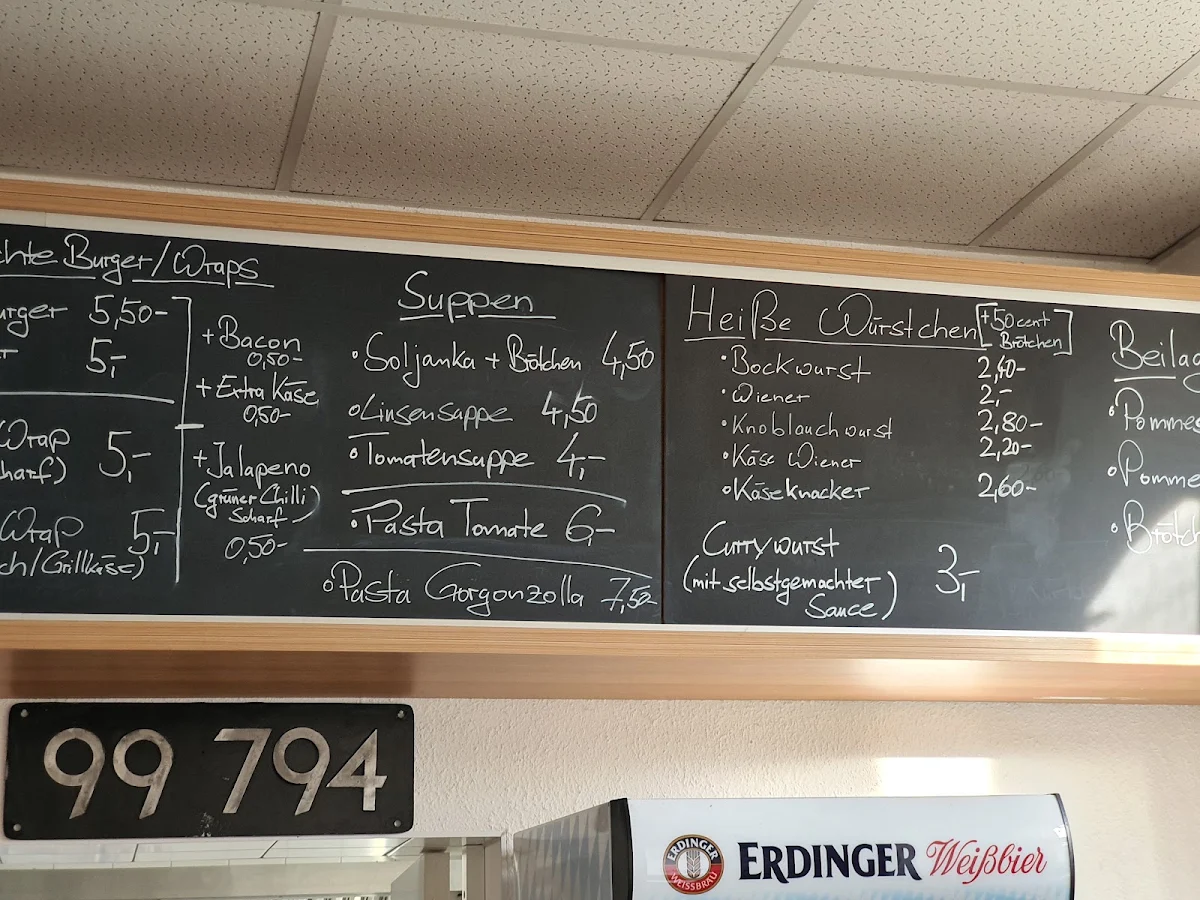 chte Burger/Wraps
urger 5,50-
r 5,-
Wrap
harf) 5,-
Wrap 5,-
ch/Grillkäse)
+Bacon
0,50-
+Extra Käse
0,50-
+Jalapeno
(grüner Chilli
Scharf)
0,50-
Suppen
•Soljanka + Brötchen 4,50
•Linsensuppe 4,50
•Tomatensuppe 4,-
•Pasta Tomate 6,-
•Pasta Gorgonzolla 7,50
Heiße Würstchen [+50 cent
Brötchen]
•Bockwurst 2,40-
•Wiener 2,-
•Knoblauchwurst 2,80-
•Käse Wiener 2,20-
•Käseknacker 2,60-
Currywurst
(mit selbstgemachter
Sauce) 3,-
Beilag
•Pommes
•Pomme
•Brötch
99 794
ERDINGER
WEISSBRÄU
ERDINGER Weißbier